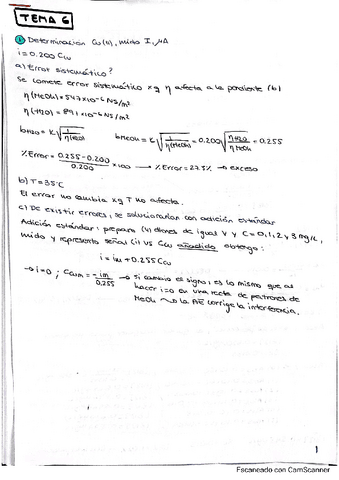 TEMA 6
① Determinación Cu(II), mido I, μA
i = 0.200 Ccu
a) Error sistemático?
Se comete error sistemático xq η afecta a la pendiente (b)
η (MeOH) = 547x10⁻⁶ Ns/m²
η (H2O) = 891x10⁻⁶ Ns/m²
bH2O = K √(1/η(H2O)) bMeOH = K √(1/η(MeOH)) = 0.200 √(ηH2O/ηMeOH) = 0.255
%Error = (0.255 - 0.200)/0.200 x100 → %Error = 27.5% → exceso
b) T = 35°C
El error no cambia xq T no afecta.
c) De existir errores, se solucionarían con adición estándar
Adición estándar: preparo (4) disnes de igual V y C = 0, 1, 2 y 3 mg/L,
mido y represento señal (i) vs Ccu añadido obtengo:
i = im + 0.255 Ccu
→ i = 0 ; = -im/0.255 → si cambio el signo, es lo mismo que al
hacer i = 0 en una recta de patrones de
MeOH → la AE corrige la interferencia.
1
Escaneado con CamScanner